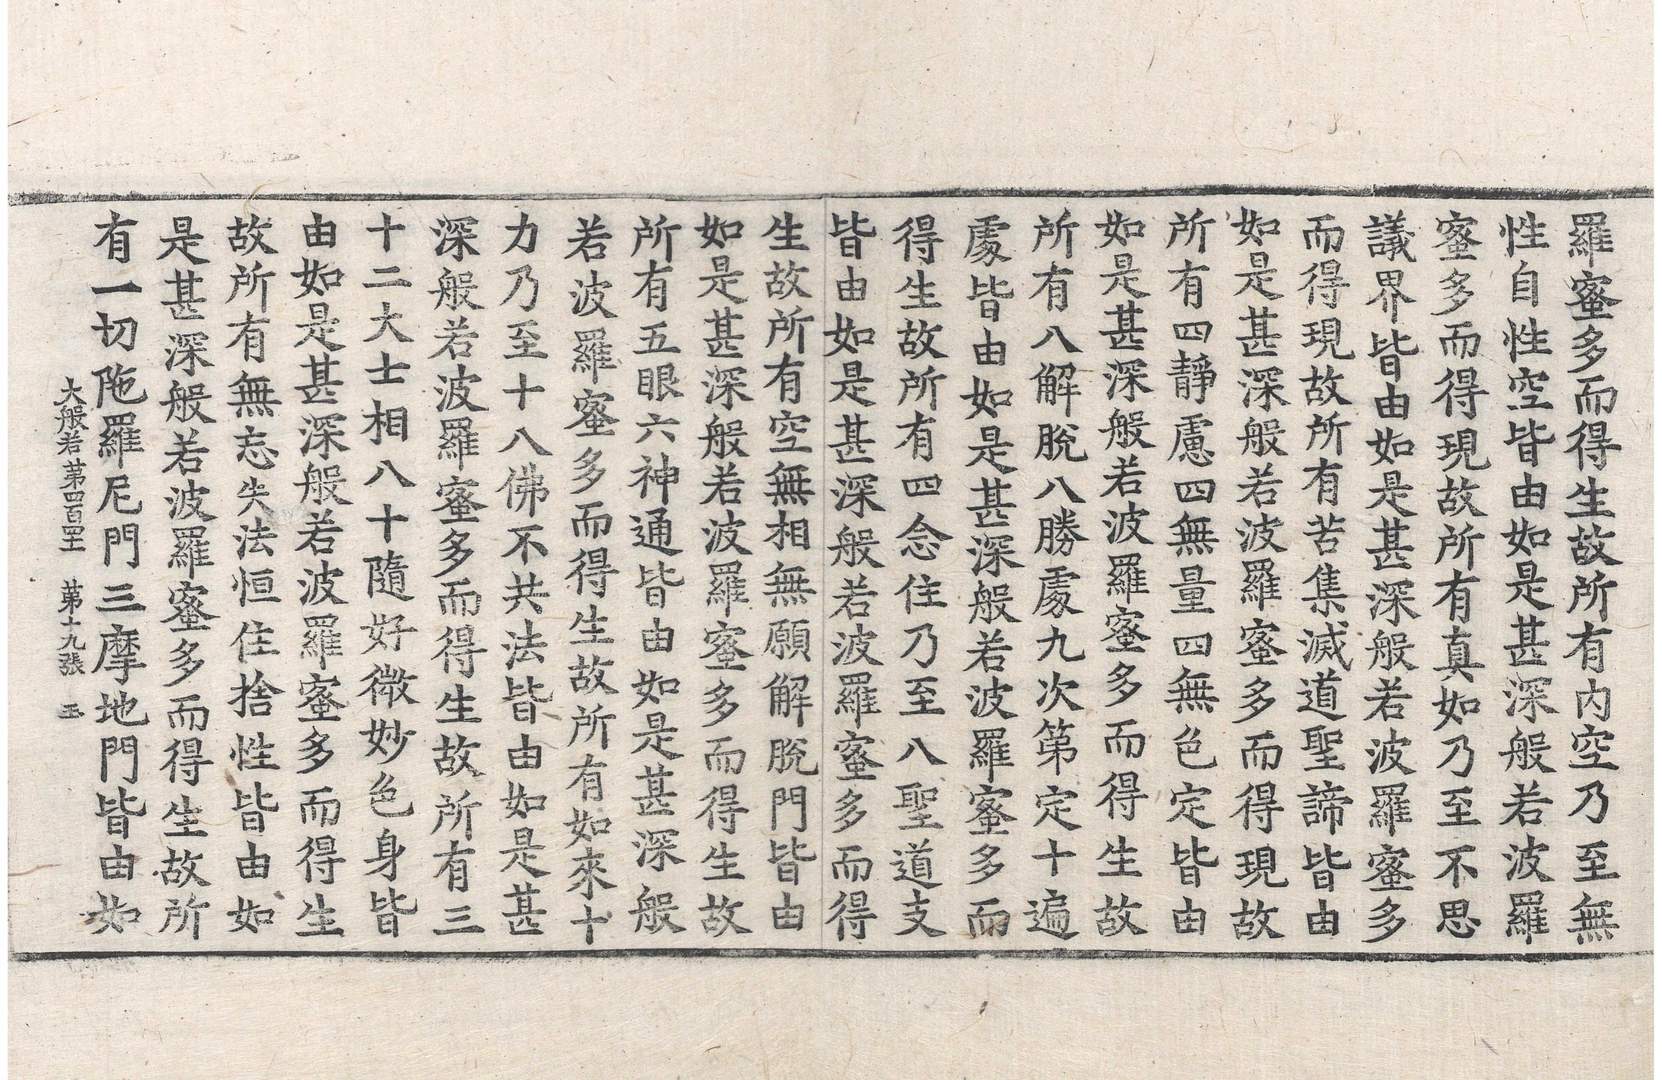 羅蜜多而得生故所有內空乃至無
性自性空皆由如是甚深般若波羅
蜜多而得現故所有真如乃至不思
議界皆由如是甚深般若波羅蜜多
而得現故所有苦集滅道聖諦皆由
如是甚深般若波羅蜜多而得現故
所有四靜慮四無量四無色定皆由
如是甚深般若波羅蜜多而得生故
所有八解脫八勝處九次第定十遍
處皆由如是甚深般若波羅蜜多而
得生故所有四念住乃至八聖道支
皆由如是甚深般若波羅蜜多而得
生故所有空無相無願解脫門皆由
如是甚深般若波羅蜜多而得生故
所有五眼六神通皆由如是甚深般
若波羅蜜多而得生故所有如來十
力乃至十八佛不共法皆由如是甚
深般若波羅蜜多而得生故所有三
十二大士相八十隨好微妙色身皆
由如是甚深般若波羅蜜多而得生
故所有無忘失法恒住捨性皆由如
是甚深般若波羅蜜多而得生故所
有一切陁羅尼門三摩地門皆由如
大般若第四百 第十九張 玉